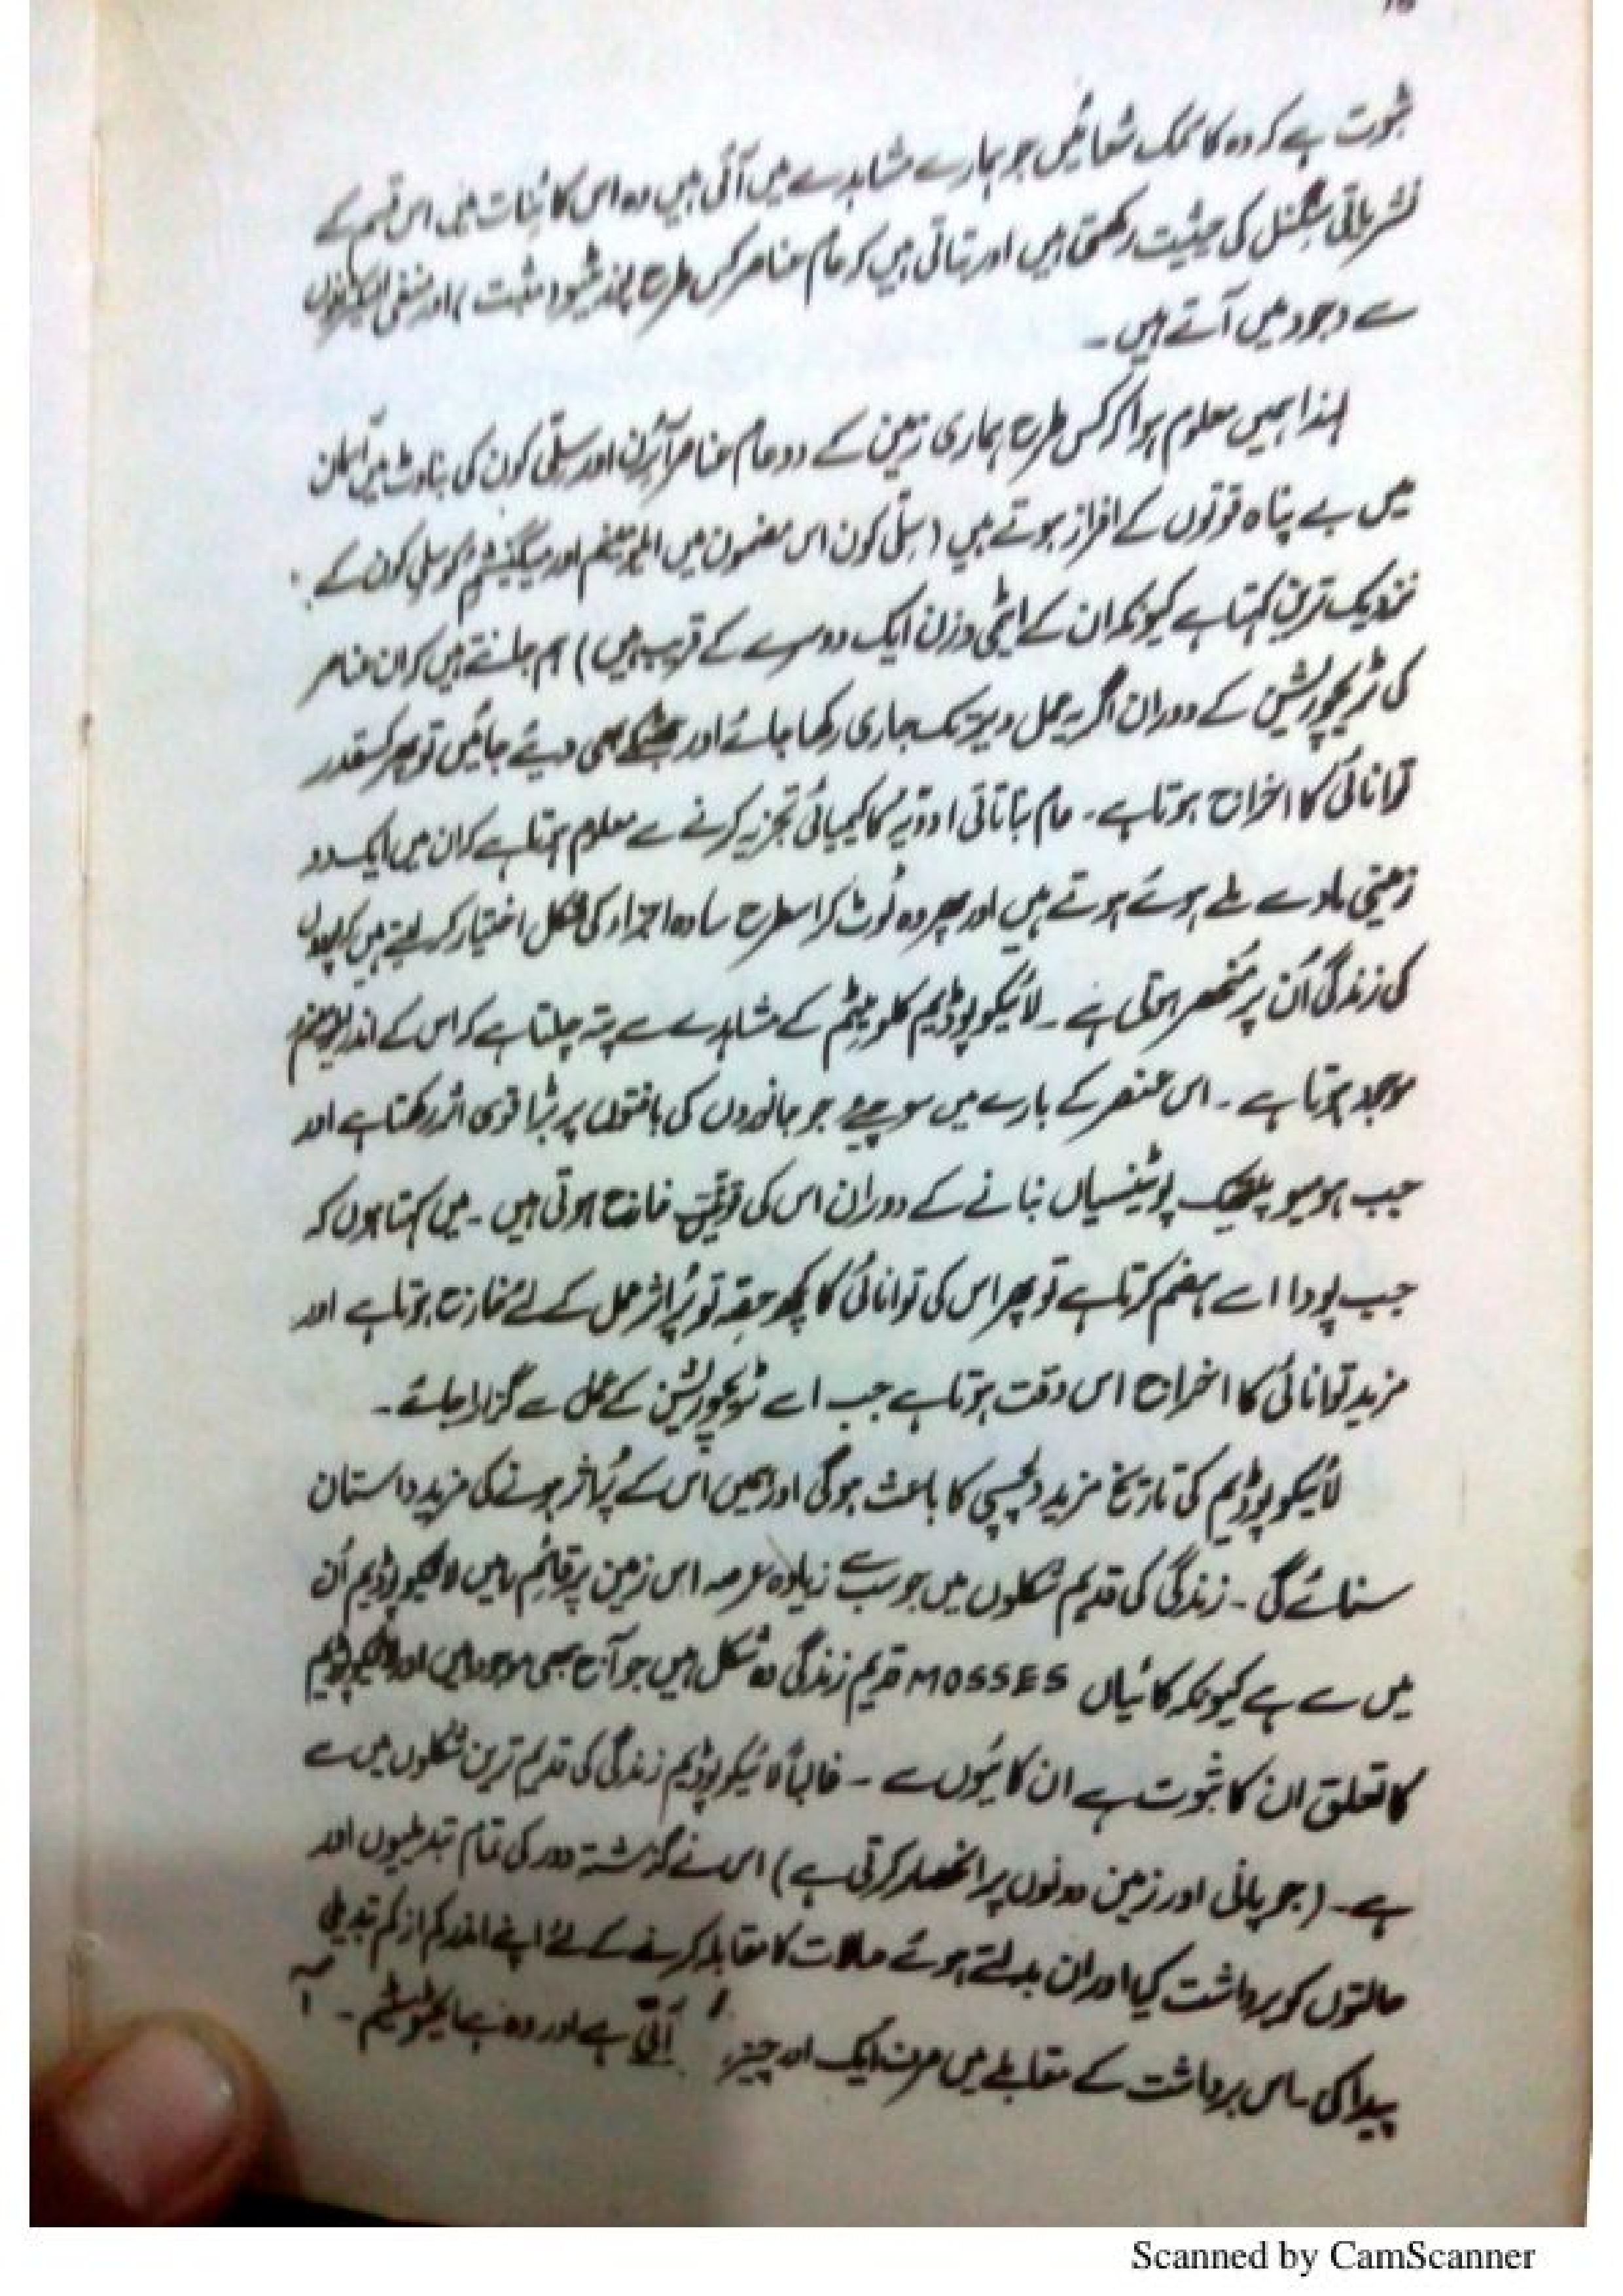 ثبوت ہے کہ وہ کاسمک شعائیں جو ہمارے مشاہدے میں آئی ہیں وہ اس کائنات میں اس قسم کے
نشریاتی سگنل کی حیثیت رکھتی ہیں اور بتاتی ہیں کہ عام عناصر کس طرح (مثبت) اور منفی
سے وجود میں آتے ہیں۔
لہذا ہمیں معلوم ہوا کہ کس طرح ہماری زمین کے دو عام عناصر آئرن اور سیلی کون کی بناوٹ میں
میں بے پناہ قوتوں کے افراز ہوتے ہیں (سیلی کون اس مضمون میں ایلومینم اور میگنیشم کو سیلی کون کے
نزدیک ترین کہتا ہے کیونکہ ان کے ایٹمی وزن ایک دوسرے کے قریب ہیں) ہم جانتے ہیں کہ ان عناصر
کی ٹریچوریشن کے دوران اگر یہ عمل دیر تک جاری رکھا جائے اور جھٹکے بھی دیئے جائیں تو پھر کسقدر
توانائی کا اخراج ہوتا ہے۔ عام نباتاتی ادویہ کا کیمیائی تجزیہ کرنے سے معلوم ہوتا ہے کہ ان میں ایک دو
زمینی مادے ملے ہوئے ہوتے ہیں اور پھر وہ ٹوٹ کر اسطرح سادہ اجزاء کی شکل اختیار کر لیتے ہیں کہ پودوں
کی زندگی اُن پر منحصر ہوتی ہے۔ لائیکوپوڈیم کلوویٹم کے مشاہدے سے پتہ چلتا ہے کہ اس کے اندر ایلومینم
موجود ہوتا ہے۔ اس عنصر کے بارے میں سوچیئے جو جانوروں کی بافتوں پر بڑا قوی اثر رکھتا ہے اور
جب ہومیو پیتھک پوٹینسیاں بنانے کے دوران اس کی قوتیں خارج ہوتی ہیں۔ میں کہتا ہوں کہ
جب پودا اسے ہضم کرتا ہے تو پھر اس کی توانائی کا کچھ حصہ تو پُراثر عمل کے لئے خارج ہوتا ہے اور
مزید توانائی کا اخراج اس وقت ہوتا ہے جب اسے ٹریچوریشن کے عمل سے گزارا جائے۔
لائیکوپوڈیم کی تاریخ مزید دلچسپی کا باعث ہوگی اور ہمیں اس کے پُراثر ہونے کی مزید داستان
سنائے گی۔ زندگی کی قدیم شکلوں میں جو سب سے زیادہ عرصہ اس زمین پر قائم رہیں لائیکوپوڈیم اُن
میں سے ہے کیونکہ کائیاں MOSSES قدیم زندگی وہ شکل ہیں جو آج بھی موجود ہیں اور لائیکوپوڈیم
کا تعلق ان کا ثبوت ہے ان کائیوں سے ۔ غالباً لائیکوپوڈیم زندگی کی قدیم ترین شکلوں میں سے
ہے۔ (جو پانی اور زمین دونوں پر انحصار کرتی ہے) اس نے گزشتہ دور کی تمام تبدیلیوں اور
حالتوں کو برداشت کیا اور ان بدلتے ہوئے حالات کا مقابلہ کرنے کے لئے اپنے اندر کم از کم تبدیلی
پیدا کی۔ اس برداشت کے مقابلے میں صرف ایک اور چیز آتی ہے اور وہ ہے
Scanned by CamScanner